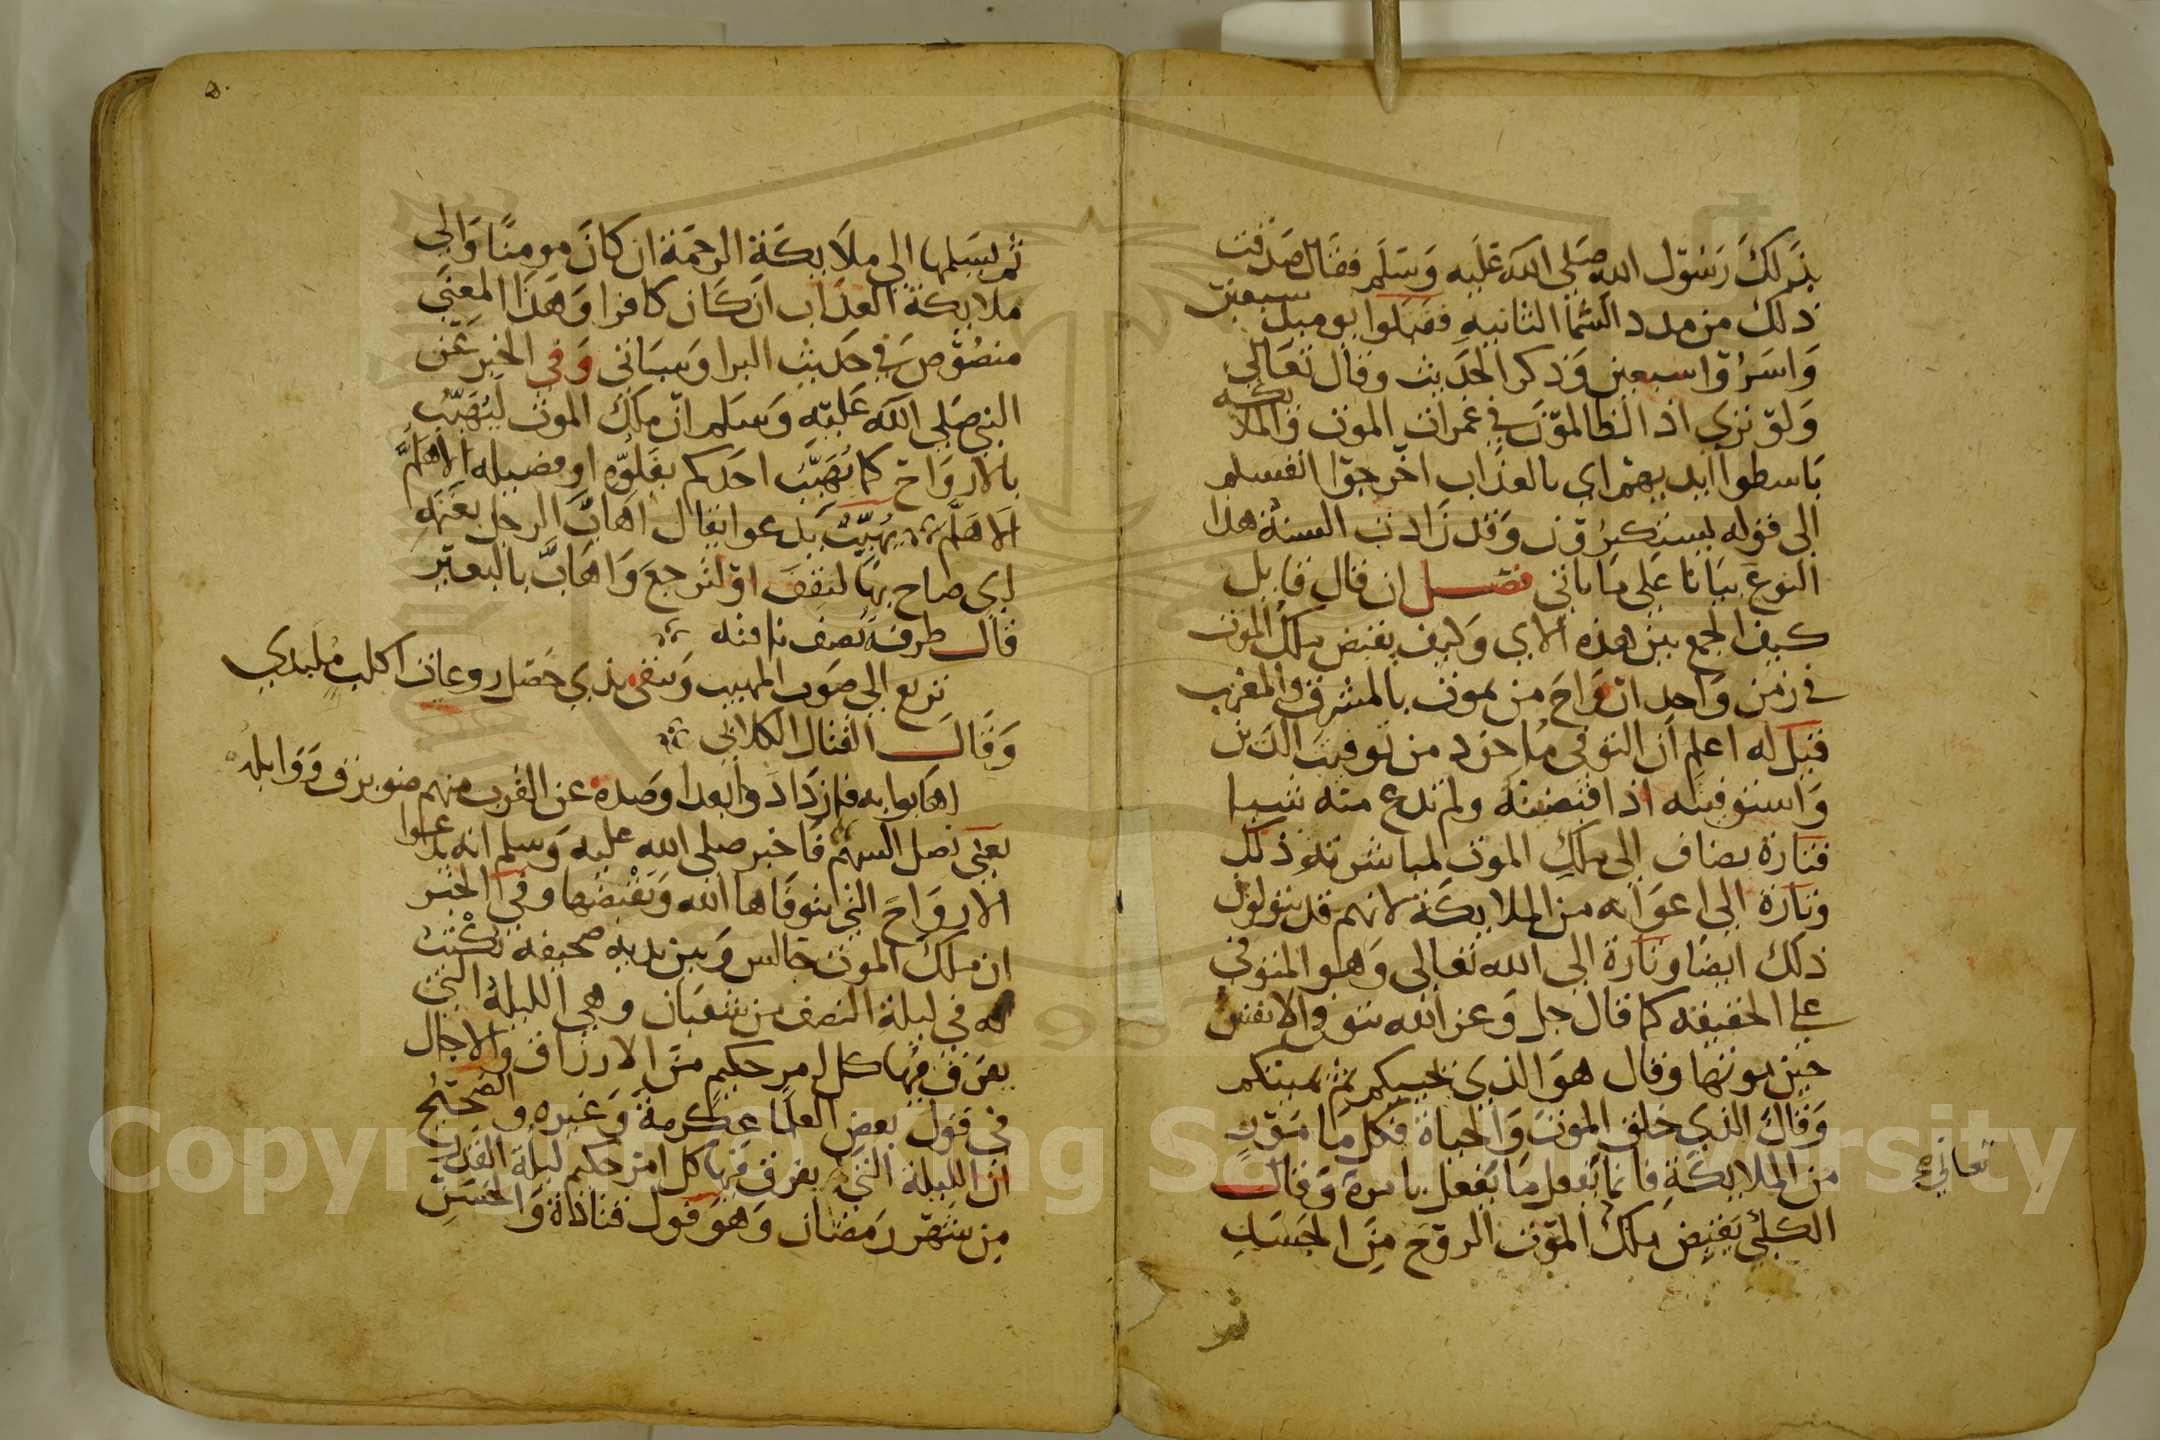 بذلك رسول الله صلى الله عليه وسلم فقال صدقت
ذلك من مدد السما الثانيه فقتلوا يوميذ سبعين
واسروا سبعين وذكر الحديث وقال تعالى
ولو ترى اذ الظالمون في غمرات الموت والملايكه
باسطوا ايديهم اي بالعذاب اخرجوا انفسكم
الى قوله يستكبرون وقد زادت السنة هذا
النوع بيانا على ما ياتي فصل ان قال قايل
كيف الجمع بين هذه الاي وكيف يقبض ملك الموت
في زمن واحد ارواح من يموت بالمشرق والمغرب
قيل له اعلم ان التوفي ماخوذ من توفيت الدين
واستوفيته اذا قبضته ولم تدع منه شيا
فتارة يضاف الى ملك الموت لمباشرته ذلك
وتارة الى اعوانه من الملايكة لانهم قد يتولون
ذلك ايضا وتارة الى الله تعالى وهو المتوفي
على الحقيقه كما قال جل وعز الله يتوفى الانفس
حين موتها وقال هو الذي يحييكم ثم يميتكم
وقال الذي خلق الموت والحياة فكل مامور
من الملايكة فانما يفعل ما يفعل بامره وقال
تعالى
الكلبي يقبض ملك الموت الروح من الجسد
ثم
ثم يسلمها الى ملايكة الرحمة ان كان مومنا والى
ملايكة العذاب ان كان كافرا وهذا المعنى
منصوص في حديث البرا وسياتي وفي الخبر عن
النبي صلى الله عليه وسلم ان ملك الموت ليهيب
بالارواح كما يهيب احدكم بفلوه او فصيله الا هلم
الا هلم يهيب يدعوا يقال اهاب الرجل بغنمه
اي صاح بها لتقف او لترجع واهاب بالبعير
قال طرفة يصف ناقته
تريع الى صوت المهيب وتتقي بذي خصل روعات اكلف ملبدي
وقال القتال الكلابي
اهابوا به فازداد بعدا وصده عن القرب منهم ضو برق ووابله
يعني نصل السهم فاخبر صلى الله عليه وسلم انه يدعوا
الارواح التي يتوفاها الله ويقبضها وفي الخبر
ان ملك الموت جالس وبين يديه صحيفه تكتب
له في ليلة النصف من شعبان وهي الليلة التي
يفرق فيها كل امر حكيم من الارزاق والاجال
في قول بعض العلما عكرمة وغيره والصحيح
ان الليلة التي يفرق فيها كل امر حكيم ليلة القدر
من شهر رمضان وهو قول قتادة والحسن
Copyright © King Saud University